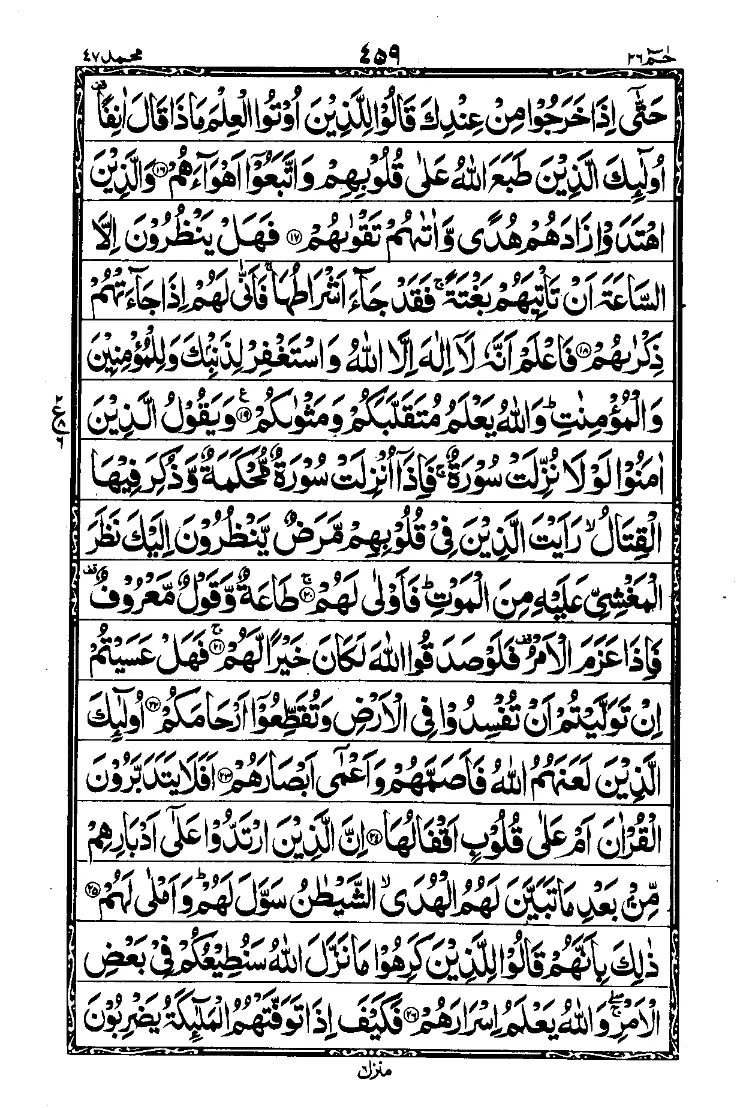 حٰمٓ ٢٦
٤٥٩
محمد ٤٧
حَتّٰۤى اِذَا خَرَجُوْا مِنْ عِنْدِكَ قَالُوْا لِلَّذِيْنَ اُوْتُوا الْعِلْمَ مَاذَا قَالَ اٰنِفًا ۟قف
اُولٰٓئِكَ الَّذِيْنَ طَبَعَ اللّٰهُ عَلٰى قُلُوْبِهِمْ وَاتَّبَعُوْۤا اَهْوَآءَهُمْ ۝١٦ وَالَّذِيْنَ
اهْتَدَوْا زَادَهُمْ هُدًى وَّاٰتٰىهُمْ تَقْوٰىهُمْ ۝١٧ فَهَلْ يَنْظُرُوْنَ اِلَّا
السَّاعَةَ اَنْ تَاْتِيَهُمْ بَغْتَةً ۚ فَقَدْ جَآءَ اَشْرَاطُهَا ۚ فَاَنّٰى لَهُمْ اِذَا جَآءَتْهُمْ
ذِكْرٰىهُمْ ۝١٨ فَاعْلَمْ اَنَّهٗ لَاۤ اِلٰهَ اِلَّا اللّٰهُ وَاسْتَغْفِرْ لِذَنْۢبِكَ وَلِلْمُؤْمِنِيْنَ
وَالْمُؤْمِنٰتِ ؕ وَاللّٰهُ يَعْلَمُ مُتَقَلَّبَكُمْ وَمَثْوٰىكُمْ ۝١٩ع وَيَقُوْلُ الَّذِيْنَ
اٰمَنُوْا لَوْلَا نُزِّلَتْ سُوْرَةٌ ۚ فَاِذَاۤ اُنْزِلَتْ سُوْرَةٌ مُّحْكَمَةٌ وَّذُكِرَ فِيْهَا
الْقِتَالُ ۙ رَاَيْتَ الَّذِيْنَ فِيْ قُلُوْبِهِمْ مَّرَضٌ يَّنْظُرُوْنَ اِلَيْكَ نَظَرَ
الْمَغْشِيِّ عَلَيْهِ مِنَ الْمَوْتِ ؕ فَاَوْلٰى لَهُمْ ۝٢٠ج طَاعَةٌ وَّقَوْلٌ مَّعْرُوْفٌ قف
فَاِذَا عَزَمَ الْاَمْرُ قف فَلَوْ صَدَقُوا اللّٰهَ لَكَانَ خَيْرًا لَّهُمْ ۝٢١ج فَهَلْ عَسَيْتُمْ
اِنْ تَوَلَّيْتُمْ اَنْ تُفْسِدُوْا فِي الْاَرْضِ وَتُقَطِّعُوْۤا اَرْحَامَكُمْ ۝٢٢ اُولٰٓئِكَ
الَّذِيْنَ لَعَنَهُمُ اللّٰهُ فَاَصَمَّهُمْ وَاَعْمٰۤى اَبْصَارَهُمْ ۝٢٣ اَفَلَا يَتَدَبَّرُوْنَ
الْقُرْاٰنَ اَمْ عَلٰى قُلُوْبٍ اَقْفَالُهَا ۝٢٤ اِنَّ الَّذِيْنَ ارْتَدُّوْا عَلٰۤى اَدْبَارِهِمْ
مِّنْۢ بَعْدِ مَا تَبَيَّنَ لَهُمُ الْهُدَى ۙ الشَّيْطٰنُ سَوَّلَ لَهُمْ ؕ وَاَمْلٰى لَهُمْ ۝٢٥
ذٰلِكَ بِاَنَّهُمْ قَالُوْا لِلَّذِيْنَ كَرِهُوْا مَا نَزَّلَ اللّٰهُ سَنُطِيْعُكُمْ فِيْ بَعْضِ
الْاَمْرِ ۚۖ وَاللّٰهُ يَعْلَمُ اِسْرَارَهُمْ ۝٢٦ فَكَيْفَ اِذَا تَوَفَّتْهُمُ الْمَلٰٓئِكَةُ يَضْرِبُوْنَ
منزل ٦